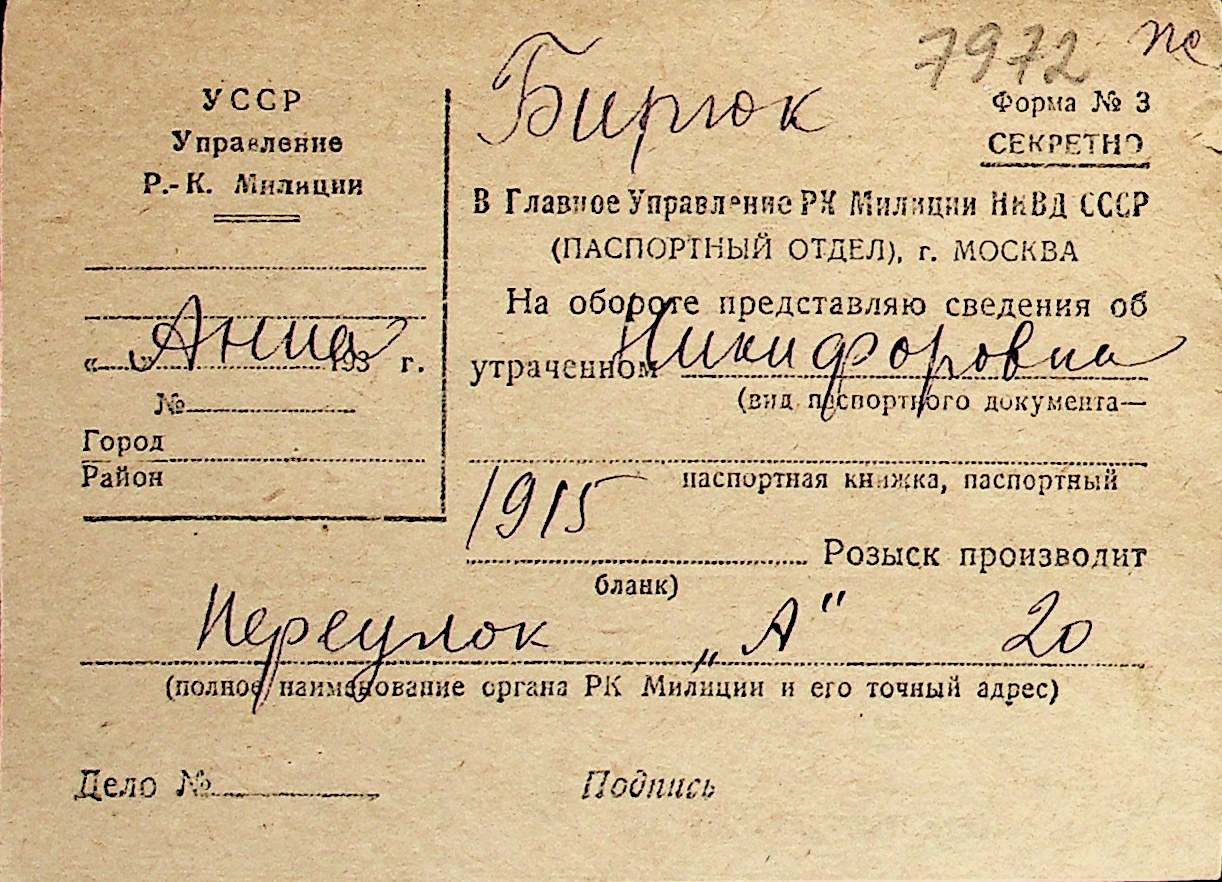 7972 пс
УССР
Управление
Р.-К. Милиции
« » 193 г.
№
Город
Район
Бирюк
Форма № 3
СЕКРЕТНО
В Главное Управление РК Милиции НКВД СССР
(ПАСПОРТНЫЙ ОТДЕЛ), г. МОСКВА
На обороте представляю сведения об
Анна
утраченном Никифоровна
(вид паспортного документа—
паспортная книжка, паспортный
1915
Розыск производит
бланк)
Переулок „А" 20
(полное наименование органа РК Милиции и его точный адрес)
Дело № Подпись